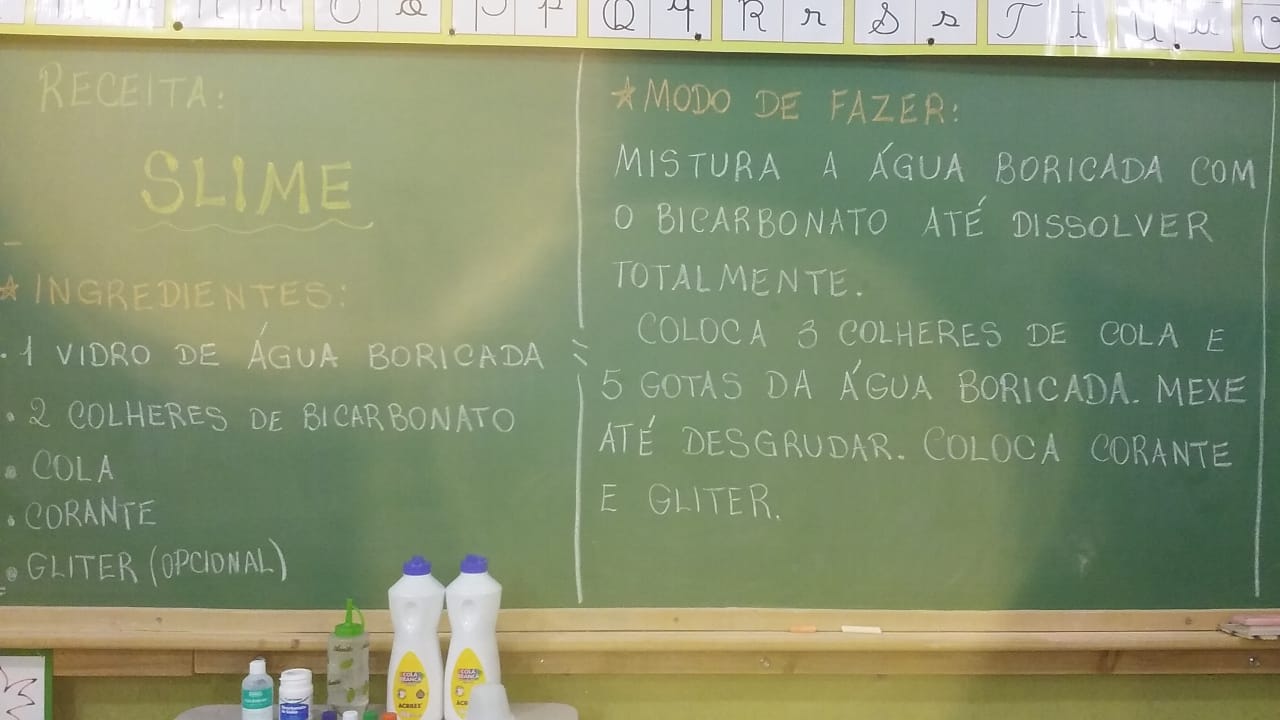 Q q R r S s T t U u
RECEITA:
SLIME
★ INGREDIENTES:
• 1 VIDRO DE ÁGUA BORICADA
• 2 COLHERES DE BICARBONATO
• COLA
• CORANTE
• GLITER (OPCIONAL)
★ MODO DE FAZER:
MISTURA A ÁGUA BORICADA COM
O BICARBONATO ATÉ DISSOLVER
TOTALMENTE.
COLOCA 3 COLHERES DE COLA E
5 GOTAS DA ÁGUA BORICADA. MEXE
ATÉ DESGRUDAR. COLOCA CORANTE
E GLITER.
COLA
BRANCA
ACRILEX
COLA
BRANCA